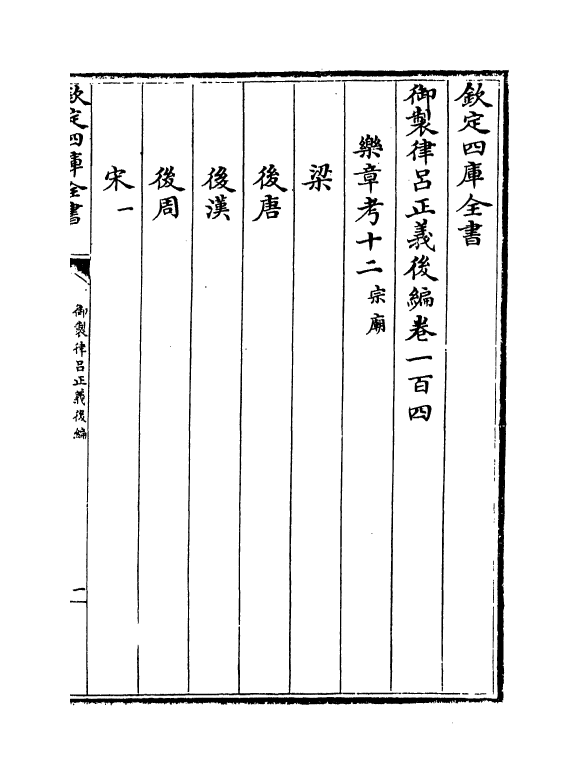 欽定四庫全書
御製律呂正義後編卷一百四
樂章考十二宗廟
梁
後唐
後漢
後周
宋一
欽定四庫全書
御製律呂正義後編
一